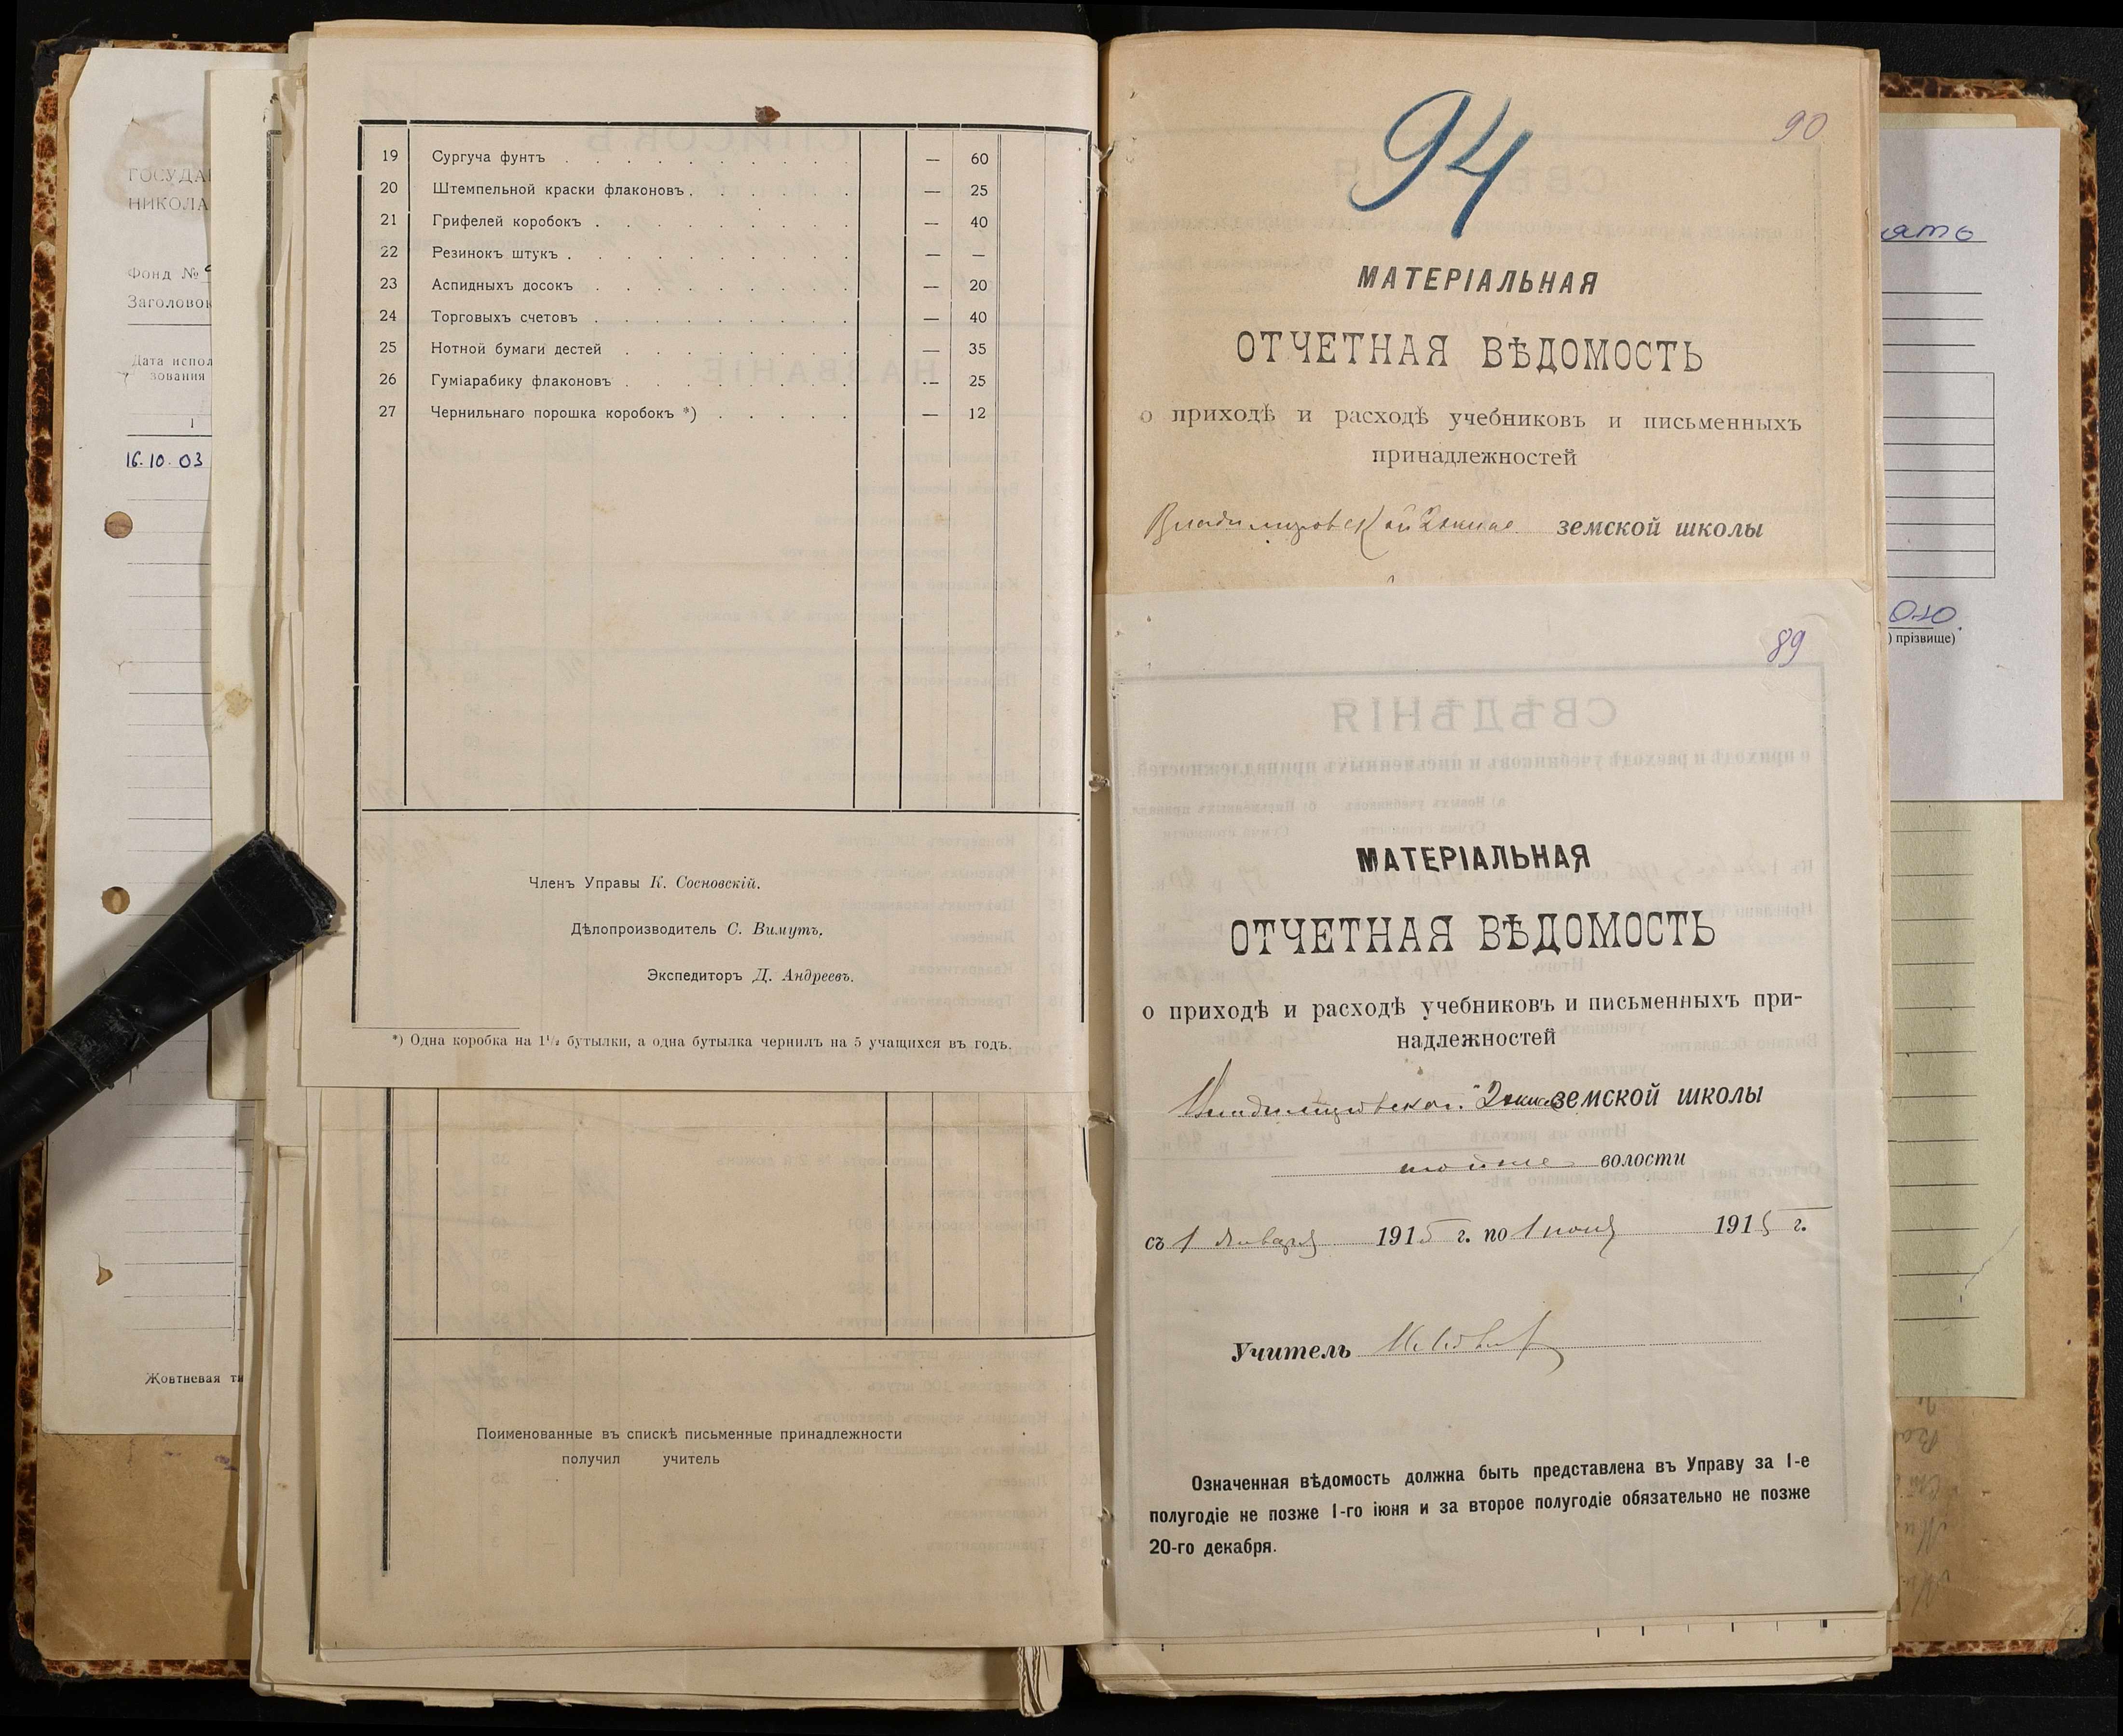 ГОСУДА
НИКОЛА
Фонд №
Заголовок
Дата испол
зования
1
16.10.03
Жовтневая ти
19 Сургуча фунтъ — 60
20 Штемпельной краски флаконовъ — 25
21 Грифелей коробокъ — 40
22 Резинокъ штукъ — —
23 Аспидныхъ досокъ — 20
24 Торговыхъ счетовъ — 40
25 Нотной бумаги дестей — 35
26 Гуміарабику флаконовъ — 25
27 Чернильнаго порошка коробокъ *) — 12
Членъ Управы К. Сосновскій.
Дѣлопроизводитель С. Вимутъ.
Экспедиторъ Д. Андреевъ.
*) Одна коробка на 1½ бутылки, а одна бутылка чернилъ на 5 учащихся въ годъ.
Поименованные въ спискѣ письменные принадлежности
получил учитель
94
90
МАТЕРІАЛЬНАЯ
ОТЧЕТНАЯ ВѢДОМОСТЬ
о приходѣ и расходѣ учебниковъ и письменныхъ
принадлежностей
Владимировской 2хкл земской школы
89
МАТЕРІАЛЬНАЯ
ОТЧЕТНАЯ ВѢДОМОСТЬ
о приходѣ и расходѣ учебниковъ и письменныхъ при-
надлежностей
Владимировской 2хкл земской школы
волости
съ 1 Января 1915 г. по 1 июня 1915 г.
Учитель
Означенная вѣдомость должна быть представлена въ Управу за I-е
полугодіе не позже I-го іюня и за второе полугодіе обязательно не позже
20-го декабря.
ято
) прізвище)